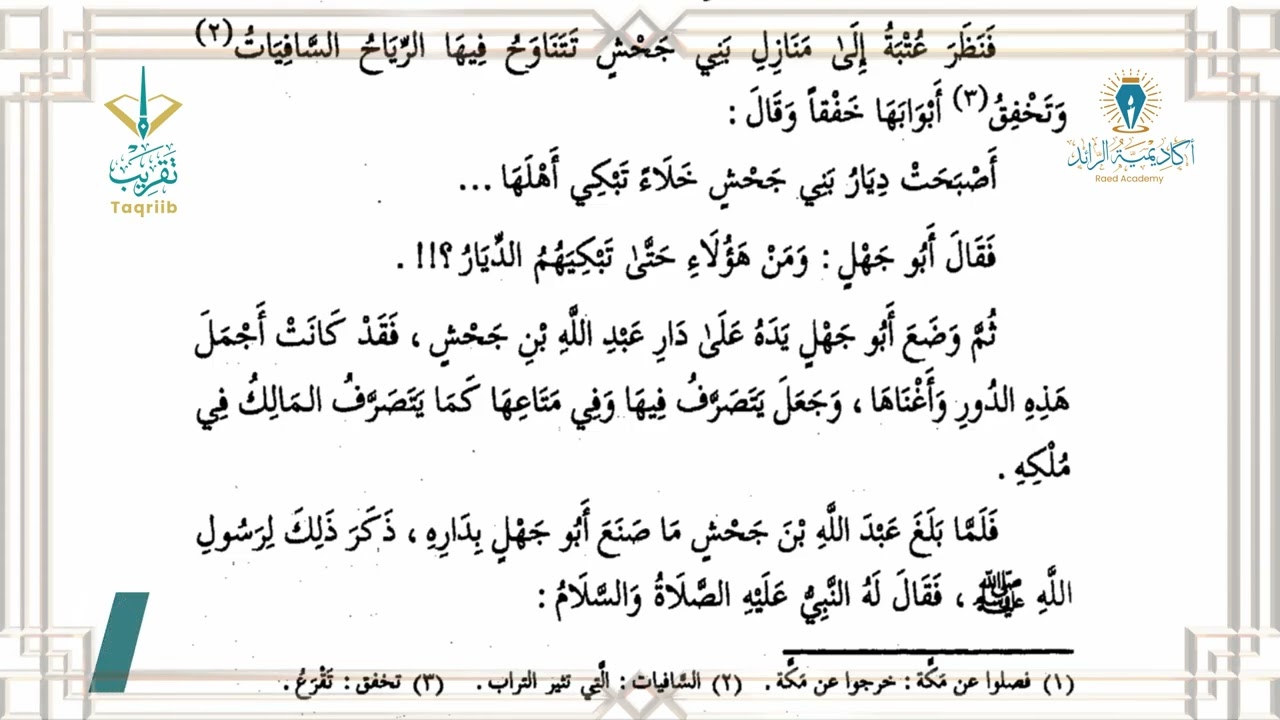 فَنَظَرَ عُتْبَةُ إِلَىٰ مَنَازِلِ بَنِي جَحْشٍ تَتَنَاوَحُ فِيهَا الرِّيَاحُ السَّافِيَاتُ (٢)
وَتَخْفِقُ (٣) أَبْوَابَهَا خَفْقاً وَقَالَ :
أَصْبَحَتْ دِيَارُ بَنِي جَحْشٍ خَلَاءً تَبْكِي أَهْلَهَا ...
فَقَالَ أَبُو جَهْلٍ : وَمَنْ هَؤُلَاءِ حَتَّىٰ تَبْكِيَهُمُ الدِّيَارُ ؟!! .
ثُمَّ وَضَعَ أَبُو جَهْلٍ يَدَهُ عَلَىٰ دَارِ عَبْدِ اللَّهِ بْنِ جَحْشٍ ، فَقَدْ كَانَتْ أَجْمَلَ
هَذِهِ الدُّورِ وَأَغْنَاهَا ، وَجَعَلَ يَتَصَرَّفُ فِيهَا وَفِي مَتَاعِهَا كَمَا يَتَصَرَّفُ المَالِكُ فِي
مُلْكِهِ .
فَلَمَّا بَلَغَ عَبْدَ اللَّهِ بْنَ جَحْشٍ مَا صَنَعَ أَبُو جَهْلٍ بِدَارِهِ ، ذَكَرَ ذَلِكَ لِرَسُولِ
اللَّهِ ﷺ ، فَقَالَ لَهُ النَّبِيُّ عَلَيْهِ الصَّلَاةُ وَالسَّلَامُ :
(١) فصلوا عن مَكَّة : خرجوا عن مَكَّة . (٢) السَّافيات : الَّتِي تثير التراب . (٣) تخفق : تَقْرَعُ .
تقريب
Taqriib
أكاديمية الرائد
Raed Academy